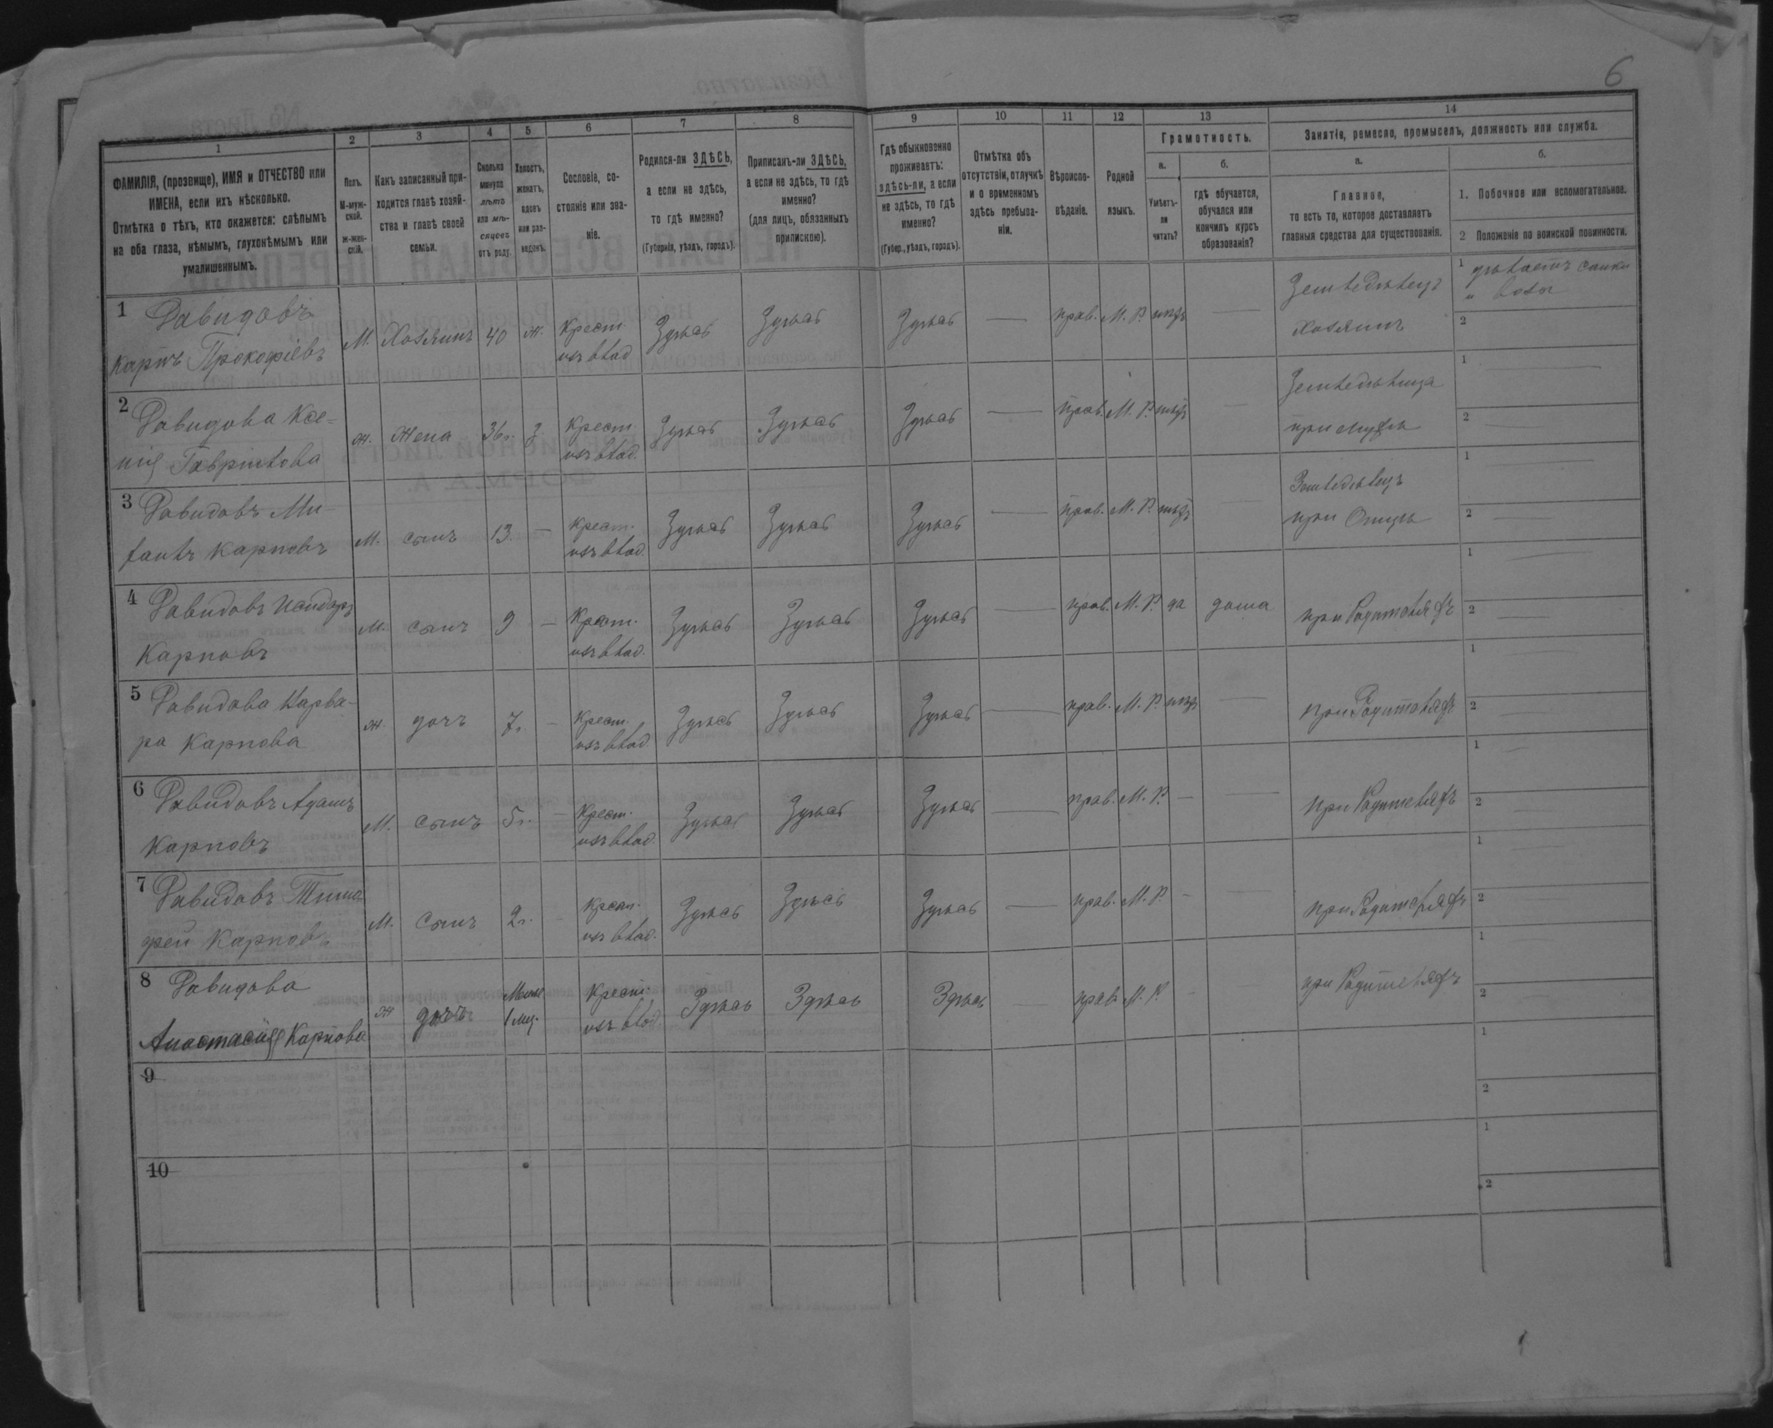 6
1
2
3
4
5
6
7
8
9
10
11
12
13
14
ФАМИЛІЯ, (прозвище), ИМЯ и ОТЧЕСТВО или
ИМЕНА, если ихъ нѣсколько.
Отмѣтка о тѣхъ, кто окажется: слѣпымъ
на оба глаза, нѣмымъ, глухонѣмымъ или
умалишеннымъ.
Полъ.
М-муж-
ской.
ж-жен-
скій.
Какъ записанный при-
ходится главѣ хозяй-
ства и главѣ своей
семьи.
Сколько
минуло
лѣтъ
или мѣ-
сяцевъ
отъ роду.
Холостъ,
женатъ,
вдовъ
или раз-
веденъ.
Сословіе, со-
стояніе или зва-
ніе.
Родился-ли ЗДѢСЬ,
а если не здѣсь,
то гдѣ именно?
(Губернія, уѣздъ, городъ).
Приписанъ-ли ЗДѢСЬ,
а если не здѣсь, то гдѣ
именно?
(для лицъ, обязанныхъ
припискою).
Гдѣ обыкновенно
проживаетъ:
здѣсь-ли, а если
не здѣсь, то гдѣ
именно?
(Губер., уѣздъ, городъ).
Отмѣтка объ
отсутствіи, отлучкѣ
и о временномъ
здѣсь пребыва-
ніи.
Вѣроиспо-
вѣданіе.
Родной
языкъ.
Грамотность.
а.
Умѣетъ-
ли
читать?
б.
гдѣ обучается,
обучался или
кончилъ курсъ
образованія?
Занятіе, ремесло, промыселъ, должность или служба.
а.
Главное,
то есть то, которое доставляетъ
главныя средства для существованія.
б.
1. Побочное или вспомогательное.
2 Положеніе по воинской повинности.
1 Давидовъ
Карпъ Прокофіевъ
М. Хозяинъ 40 ж. Крест.
изъ влад. Здѣсь Здѣсь Здѣсь — прав. М. Р. нѣтъ
Земледѣлецъ
хозяинъ
1 дѣлаетъ санки
и возы
2
2 Давидова Ксе-
нія Гаврилова
ж. Жена 36. З. Крест
изъ влад. Здѣсь Здѣсь Здѣсь — прав. М. Р. нѣтъ —
Земледѣлица
при мужѣ
1
2
3 Давидовъ Ми-
хаилъ Карповъ
М. сынъ 13. — Крест.
изъ влад. Здѣсь Здѣсь Здѣсь — прав. М. Р. нѣтъ —
Земледѣлецъ
при Отцѣ
1
2
4 Давидовъ Исидоръ
Карповъ
М. сынъ 9 — Крест.
изъ влад. Здѣсь Здѣсь Здѣсь — прав. М. Р. да дома
при Родителяхъ
1
2
5 Давидова Варва-
ра Карпова
ж. дочь 7. — Крест.
изъ влад. Здѣсь Здѣсь Здѣсь — прав. М. Р. нѣтъ —
при Родителяхъ
1
2
6 Давидовъ Адамъ
Карповъ
М. сынъ 5. — Крест.
изъ влад. Здѣсь Здѣсь Здѣсь — прав. М. Р. — —
при Родителяхъ
1
2
7 Давидовъ Тимо
фей Карповъ
М. сынъ 2. Крест.
изъ влад. Здѣсь Здѣсь Здѣсь — прав. М. Р. — —
при Родителяхъ
1
2
8 Давидова
Анастасія Карпова
ж дочь 1 мѣ. Крест.
изъ влад. Здѣсь Здѣсь Здѣсь — прав М. Р. — —
при Родителяхъ
1
2
9
1
2
10
1
2